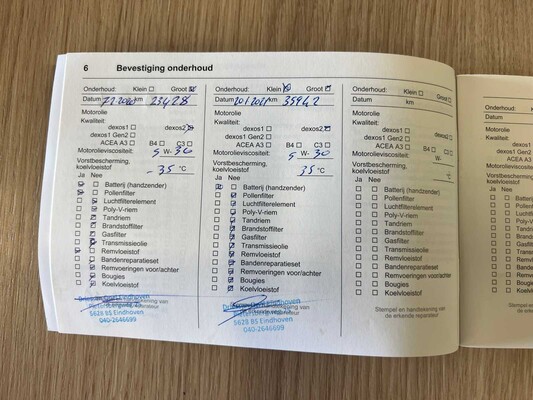 6 Bevestiging onderhoud
Onderhoud: Klein Groot
Datum km 23428
Motorolie
Kwaliteit:
dexos1 dexos2
dexos1 Gen2
ACEA A3 B4 C3
Motorolieviscositeit: 5 W- 30
Vorstbescherming,
koelvloeistof - 35 °C
Ja Nee
Batterij (handzender)
Pollenfilter
Luchtfilterelement
Poly-V-riem
Tandriem
Brandstoffilter
Gasfilter
Transmissieolie
Remvloeistof
Bandenreparatieset
Remvoeringen voor/achter
Bougies
Koelvloeistof
Eindhoven
5628 BS Eindhoven
040-2646699
Onderhoud: Klein Groot
Datum km 35942
Motorolie
Kwaliteit:
dexos1 dexos2
dexos1 Gen2
ACEA A3 B4 C3
Motorolieviscositeit: 5 W- 30
Vorstbescherming,
koelvloeistof 35 °C
Ja Nee
Batterij (handzender)
Pollenfilter
Luchtfilterelement
Poly-V-riem
Tandriem
Brandstoffilter
Gasfilter
Transmissieolie
Remvloeistof
Bandenreparatieset
Remvoeringen voor/achter
Bougies
Koelvloeistof
Eindhoven
5628 BS Eindhoven
040-2646699
Onderhoud: Klein Groot
Datum km
Motorolie
Kwaliteit:
dexos1 dexos2
dexos1 Gen2
ACEA A3 B4 C3
Motorolieviscositeit: W-
Vorstbescherming,
koelvloeistof °C
Ja Nee
Batterij (handzender)
Pollenfilter
Luchtfilterelement
Poly-V-riem
Tandriem
Brandstoffilter
Gasfilter
Transmissieolie
Remvloeistof
Bandenreparatieset
Remvoeringen voor/achter
Bougies
Koelvloeistof
Stempel en handtekening van
de erkende reparateur
Onderhoud:
Datum
Motorolie
Kwaliteit:
Ja Nee